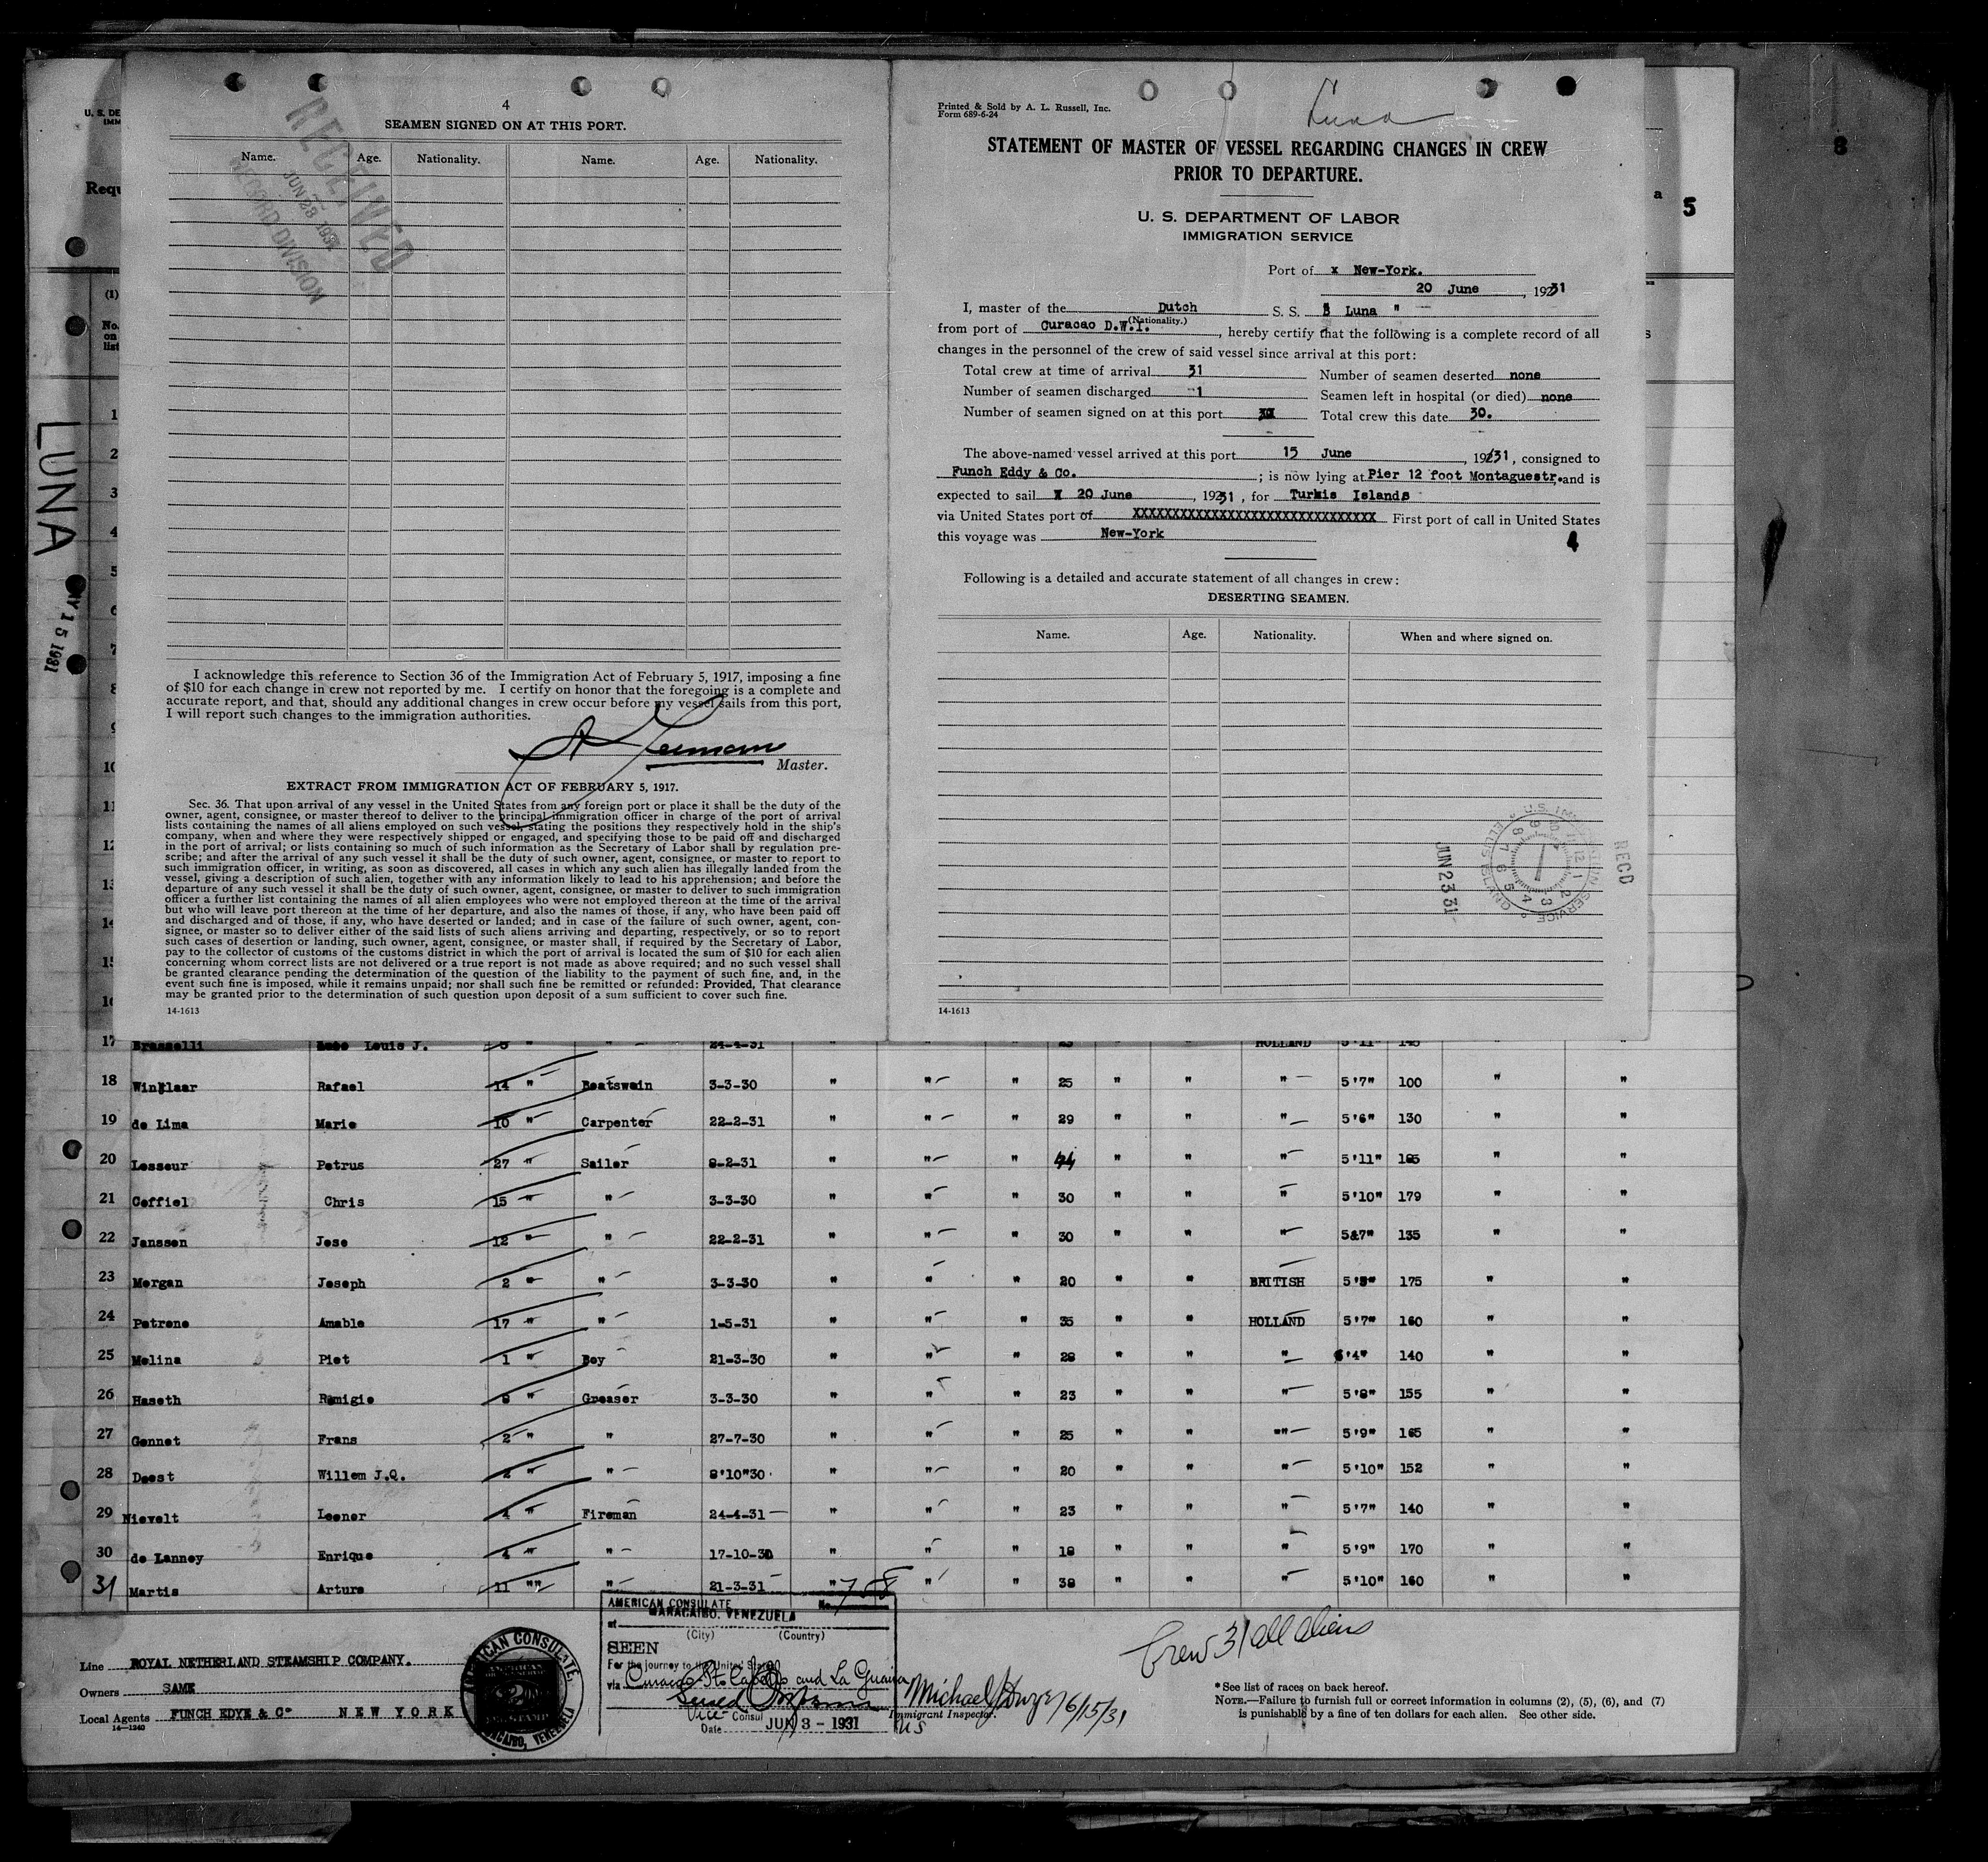 4
SEAMEN SIGNED ON AT THIS PORT.
Name. Age. Nationality. Name. Age. Nationality.
RECEIVED
JUN 23 1931
RECORD DIVISION
I acknowledge this reference to Section 36 of the Immigration Act of February 5, 1917, imposing a fine
of $10 for each change in crew not reported by me. I certify on honor that the foregoing is a complete and
accurate report, and that, should any additional changes in crew occur before my vessel sails from this port,
I will report such changes to the immigration authorities.
Master.
EXTRACT FROM IMMIGRATION ACT OF FEBRUARY 5, 1917.
Sec. 36. That upon arrival of any vessel in the United States from any foreign port or place it shall be the duty of the
owner, agent, consignee, or master thereof to deliver to the principal immigration officer in charge of the port of arrival
lists containing the names of all aliens employed on such vessel, stating the positions they respectively hold in the ship's
company, when and where they were respectively shipped or engaged, and specifying those to be paid off and discharged
in the port of arrival; or lists containing so much of such information as the Secretary of Labor shall by regulation pre-
scribe; and after the arrival of any such vessel it shall be the duty of such owner, agent, consignee, or master to report to
such immigration officer, in writing, as soon as discovered, all cases in which any such alien has illegally landed from the
vessel, giving a description of such alien, together with any information likely to lead to his apprehension; and before the
departure of any such vessel it shall be the duty of such owner, agent, consignee, or master to deliver to such immigration
officer a further list containing the names of all alien employees who were not employed thereon at the time of the arrival
but who will leave port thereon at the time of her departure, and also the names of those, if any, who have been paid off
and discharged and of those, if any, who have deserted or landed; and in case of the failure of such owner, agent, con-
signee, or master so to deliver either of the said lists of such aliens arriving and departing, respectively, or so to report
such cases of desertion or landing, such owner, agent, consignee, or master shall, if required by the Secretary of Labor,
pay to the collector of customs of the customs district in which the port of arrival is located the sum of $10 for each alien
concerning whom correct lists are not delivered or a true report is not made as above required; and no such vessel shall
be granted clearance pending the determination of the question of the liability to the payment of such fine, and, in the
event such fine is imposed, while it remains unpaid; nor shall such fine be remitted or refunded: Provided, That clearance
may be granted prior to the determination of such question upon deposit of a sum sufficient to cover such fine.
14-1613
Printed & Sold by A. L. Russell, Inc.
Form 689-6-24
Luna
STATEMENT OF MASTER OF VESSEL REGARDING CHANGES IN CREW
PRIOR TO DEPARTURE.
U. S. DEPARTMENT OF LABOR
IMMIGRATION SERVICE
Port of x New-York.
20 June, 1931
I, master of the Dutch S. S. " Luna "
(Nationality.)
from port of Curacao D.W.I., hereby certify that the following is a complete record of all
changes in the personnel of the crew of said vessel since arrival at this port:
Total crew at time of arrival 31 Number of seamen deserted none
Number of seamen discharged 1 Seamen left in hospital (or died) none
Number of seamen signed on at this port Total crew this date 30.
The above-named vessel arrived at this port 15 June, 1931, consigned to
Funch Eddy & Co. ; is now lying at Pier 12 foot Montaguestr. and is
expected to sail x 20 June, 1931, for Turkis Islands
via United States port of XXXXXXXXXXXXXXXXXXXXXXXXXXXXXXX First port of call in United States
this voyage was New-York
4
Following is a detailed and accurate statement of all changes in crew:
DESERTING SEAMEN.
Name. Age. Nationality. When and where signed on.
RECD
JUN 23 31
U.S. IMMIGRATION SERVICE ELLIS ISLAND
14-1613
U. S. DE
IMM
Requ
(1)
No.
on
list
LUNA
15 1931
a 5
8
1
2
3
4
5
6
7
8
9
10
11
12
13
14
15
16
17 Brasselli Louis J. 5 " " 24-4-31 " " " 23 " " HOLLAND 5'11" 145 " "
18 Winklaar Rafael 14 " Boatswain 3-3-30 " " " 25 " " " 5'7" 100 " "
19 de Lima Mario 10 " Carpenter 22-2-31 " " " 29 " " " 5'6" 130 " "
20 Lesseur Petrus 27 " Sailor 8-2-31 " " " 44 " " " 5'11" 185 " "
21 Coffiel Chris 15 " " 3-3-30 " " " 30 " " " 5'10" 179 " "
22 Janssen Jose 12 " " 22-2-31 " " " 30 " " " 5&7" 135 " "
23 Morgan Joseph 2 " " 3-3-30 " " " 20 " " BRITISH 5'8" 175 " "
24 Petrone Amable 17 " " 1-5-31 " " " 35 " " HOLLAND 5'7" 160 " "
25 Molina Piet 1 " Boy 21-3-30 " " " 28 " " " 6'4" 140 " "
26 Haseth Remigio 8 " Greaser 3-3-30 " " " 23 " " " 5'8" 155 " "
27 Gonnet Frans 2 " " 27-7-30 " " " 25 " " "" 5'9" 165 " "
28 Doest Willem J.Q. 2 " " 8'10"30 " " " 20 " " " 5'10" 152 " "
29 Nievelt Leoner 4 " Fireman 24-4-31 " " " 23 " " " 5'7" 140 " "
30 de Lannoy Enrique 4 " " 17-10-30 " " " 18 " " " 5'9" 170 " "
31 Martis Arturo 11 "" " 21-3-31 " " " 38 " " " 5'10" 160 " "
Line ROYAL NETHERLAND STEAMSHIP COMPANY.
Owners SAME
Local Agents FUNCH EDYE & Co NEW YORK
14-1240
AMERICAN CONSULATE, MARACAIBO, VENEZUELA
AMERICAN CONSULATE No.
at MARACAIBO, VENEZUELA
(City) (Country)
SEEN
For the journey to the United States
via Curacao Pto Cabello and La Guaira
Vice- Consul
Date JUN 3 - 1931
Michael 6/15/31
Immigrant Inspector.
US
Crew 31 all aliens
* See list of races on back hereof.
NOTE.—Failure to furnish full or correct information in columns (2), (5), (6), and (7)
is punishable by a fine of ten dollars for each alien. See other side.